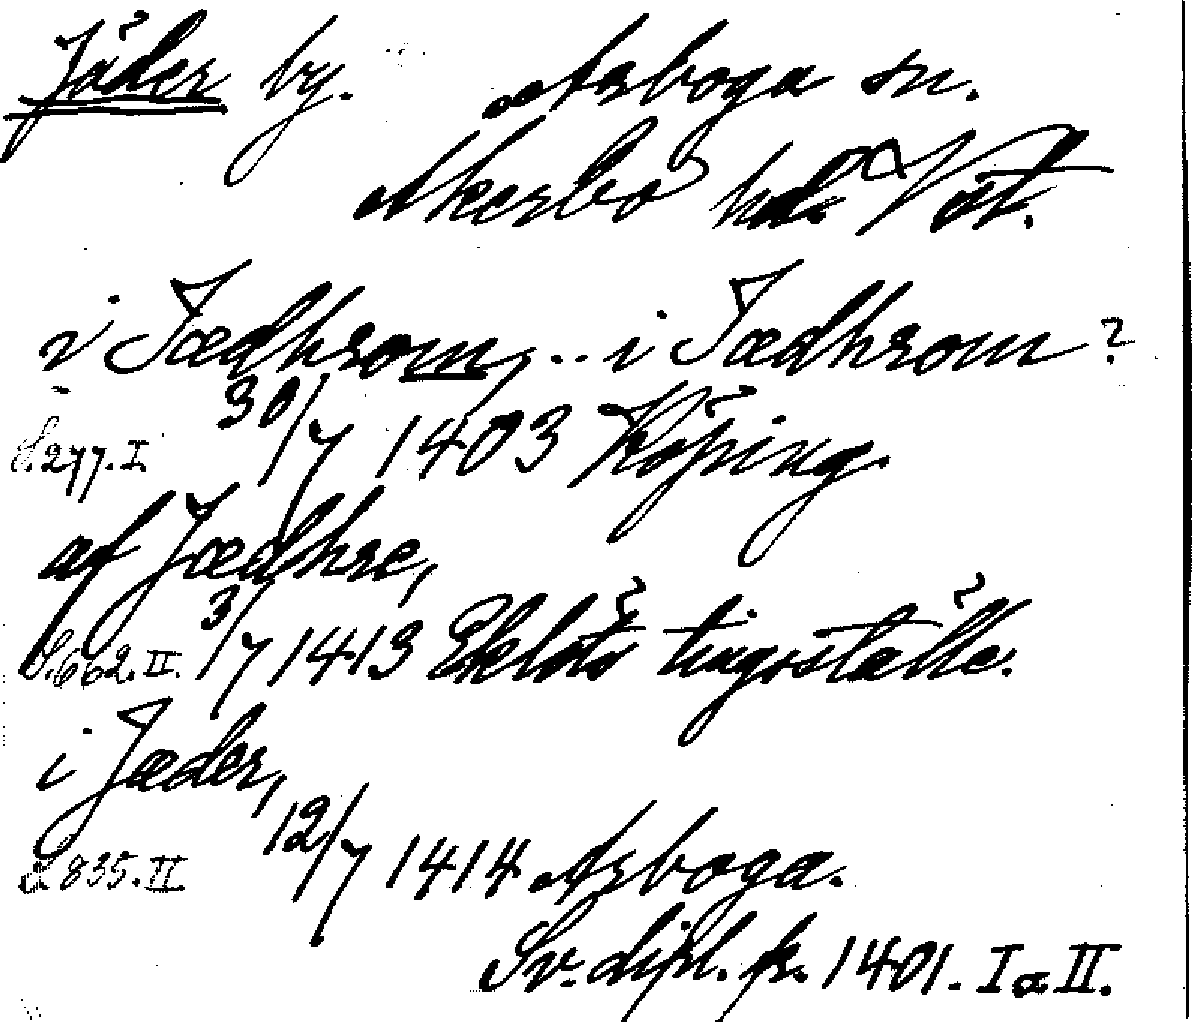 Jäder by. Arboga sn.
Åkerbo hd. Vstm.
i Jædhrom, .. i Jædhrom?
S. 277. I. 30/7 1403 Köping.
af Jædhre,
S. 662. II. 3/7 1413 Eklöts tingställe.
i Jæder,
S 835. II 12/7 1414 Arboga.
Sv. dipl. fr. 1401. I a II.